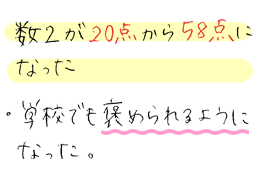 数2が20点から58点に
なった
・学校でも褒められるように
なった。